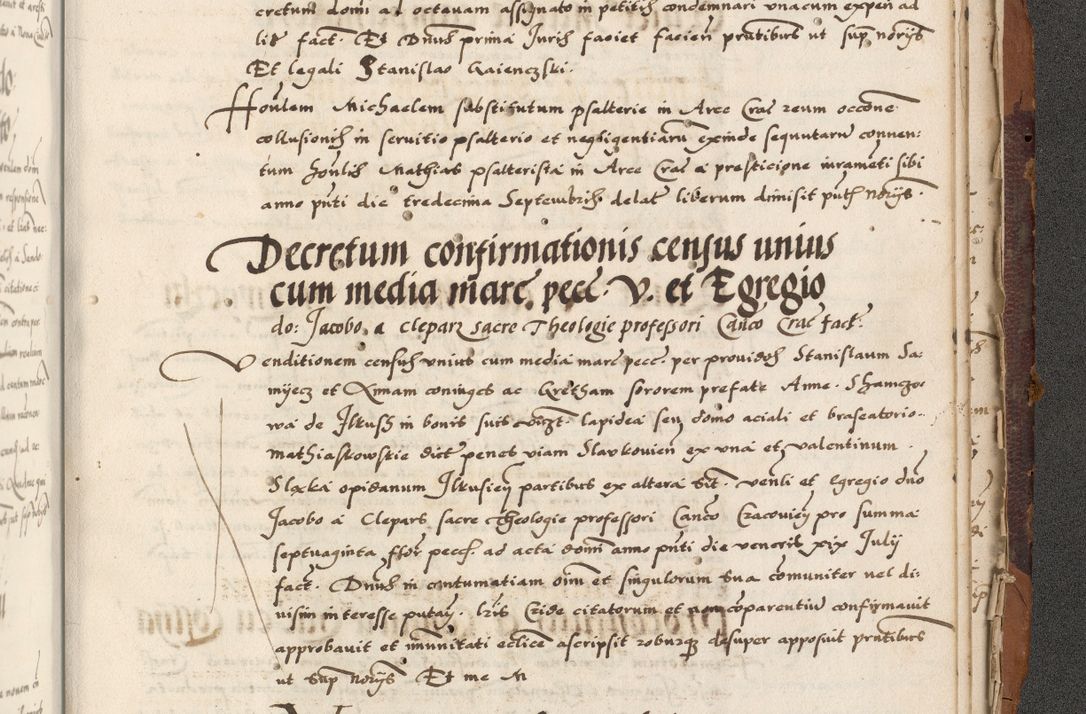 cretum domi ad octavam assignato in petitis condemnari unacum expen ad
lit fact. Et Dnus prima Juris faciet facien pntibus ut sup norijs
Et legali Stanislao Gaienczski.
Honlem Michaelem substitutum psalterie in Arce Crac reum occone
collusionis in servitio psalterio et negligentiarum exinde sequutaru conven:
tum honlis Mathias psalterista in Arce Crac a presticione iurameti sibi
anno pnti die tredecima Septembris delat liberum dimisit pntb norijs.
Decretum confirmationis census unius
cum media marc pecc. V. et Egregio
do: Jacobo a Clepars sacre Theologie professori Canco Crac fact.
Venditionem census unius cum media marc pecc. per providos Stanislaum Sa:
myecz et Annam coniuges ac Gretham sororem prefate Anne. Shamczo
wa de Ilkush in bonis suis vidzt. lapidea seu domo aciali et braseatorio
Mathiaskowskie dict penes viam Slavkovien ex una et Valentinum
Slozka opidanum Ilkusien partibus ex altera sit. Venli et Egregio dno
Jacobo a Clepars sacre Theologie professori Canco Cracovien pro summa
septuaginta flor pecc. ad acta domi anno pnti die veneris xix Julij
fact. Dnus in contumatiam oim et singulorum sua comuniter vel di:
visim interesse putan. lris Cride citatorum et non coparentiu confirmavit
approbavit et imunitati eclice ascripsit roburq desuper apposuit pntibus
ut sup norijs Et me M